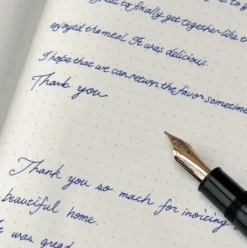 to finally get together like th
enjoyed the meal. It was delicious.
I hope that we can return the favor sometime
Thank you
Thank you so much for inviting
beautiful home.
was great